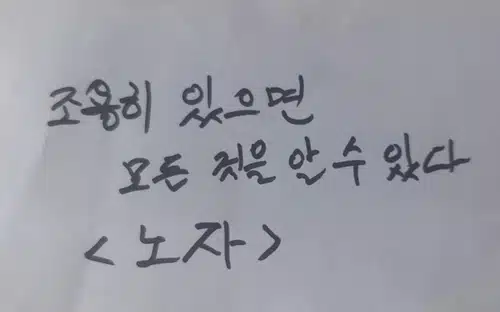 조용히 있으면
모든 것을 알 수 있다
<노자>